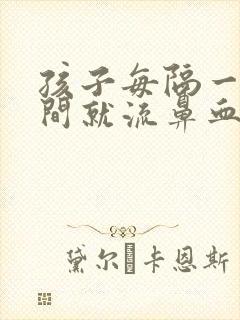 孩子每隔一
間就流鼻血
黛尔·卡恩斯